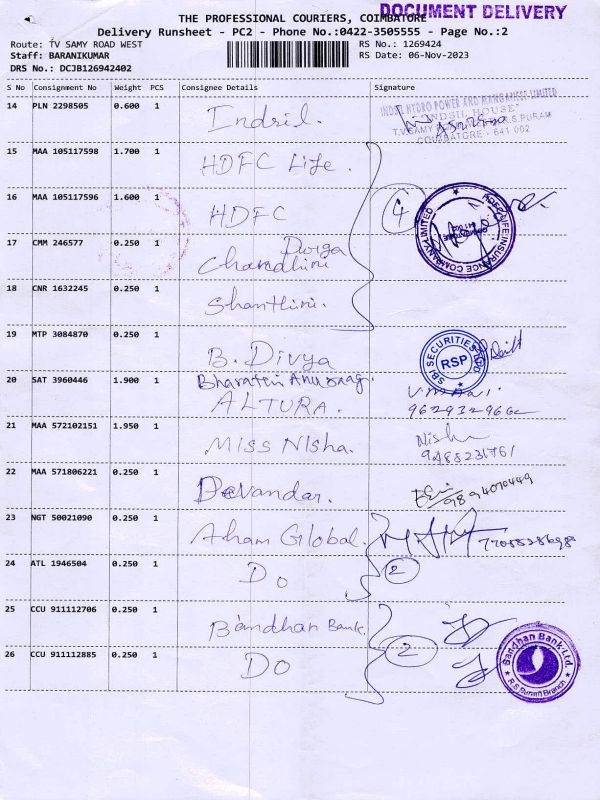 DOCUMENT DELIVERY
THE PROFESSIONAL COURIERS, COIMBATORE
Delivery Runsheet - PC2 - Phone No.:0422-3505555 - Page No.:2
Route: TV SAMY ROAD WEST
RS No.: 1269424
Staff: BARANIKUMAR
RS Date: 06-Nov-2023
DRS No.: DCJB126942402
S No Consignment No Weight PCS Consignee Details Signature
14 PLN 2298505 0.600 1 Indsil.
INDSIL HYDRO POWER AND MANGANESE LIMITED
"INDSIL HOUSE"
T.V.SAMY R.S.PURAM
COIMBATORE - 641 002
15 MAA 105117598 1.700 1 HDFC Life.
16 MAA 105117596 1.600 1 HDFC
4
HDFC LIFE INSURANCE COMPANY LIMITED
17 CMM 246577 0.250 1 Durga
Chandhini
18 CNR 1632245 0.250 1 Shanthini.
19 MTP 3084870 0.250 1 B. Divya
SBI SECURITIES
RSP
20 SAT 3960446 1.900 1 Bharathi Anurag.
ALTURA.
21 MAA 572102151 1.950 1 MISS NIsha.
Nisha
22 MAA 571806221 0.250 1 Devandar.
23 NGT 50021090 0.250 1 Aham Global.
24 ATL 1946504 0.250 1 Do
2
25 CCU 911112706 0.250 1 Bandhan Bank.
26 CCU 911112885 0.250 1 Do
2
Bandhan Bank Ltd.
R.S.Puram Branch